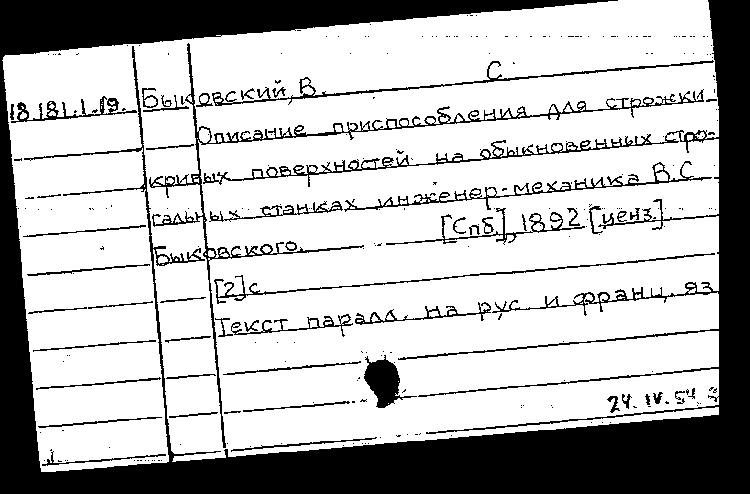 18.181.1.19. Быковский, В. С.
Описание приспособления для строжки
кривых поверхностей на обыкновенных стро-
гальных станках инженер-механика В.С.
Быковского. [Спб], 1892 [ценз.]
[2]с.
Текст паралл. на рус. и франц. яз
24.IV.54